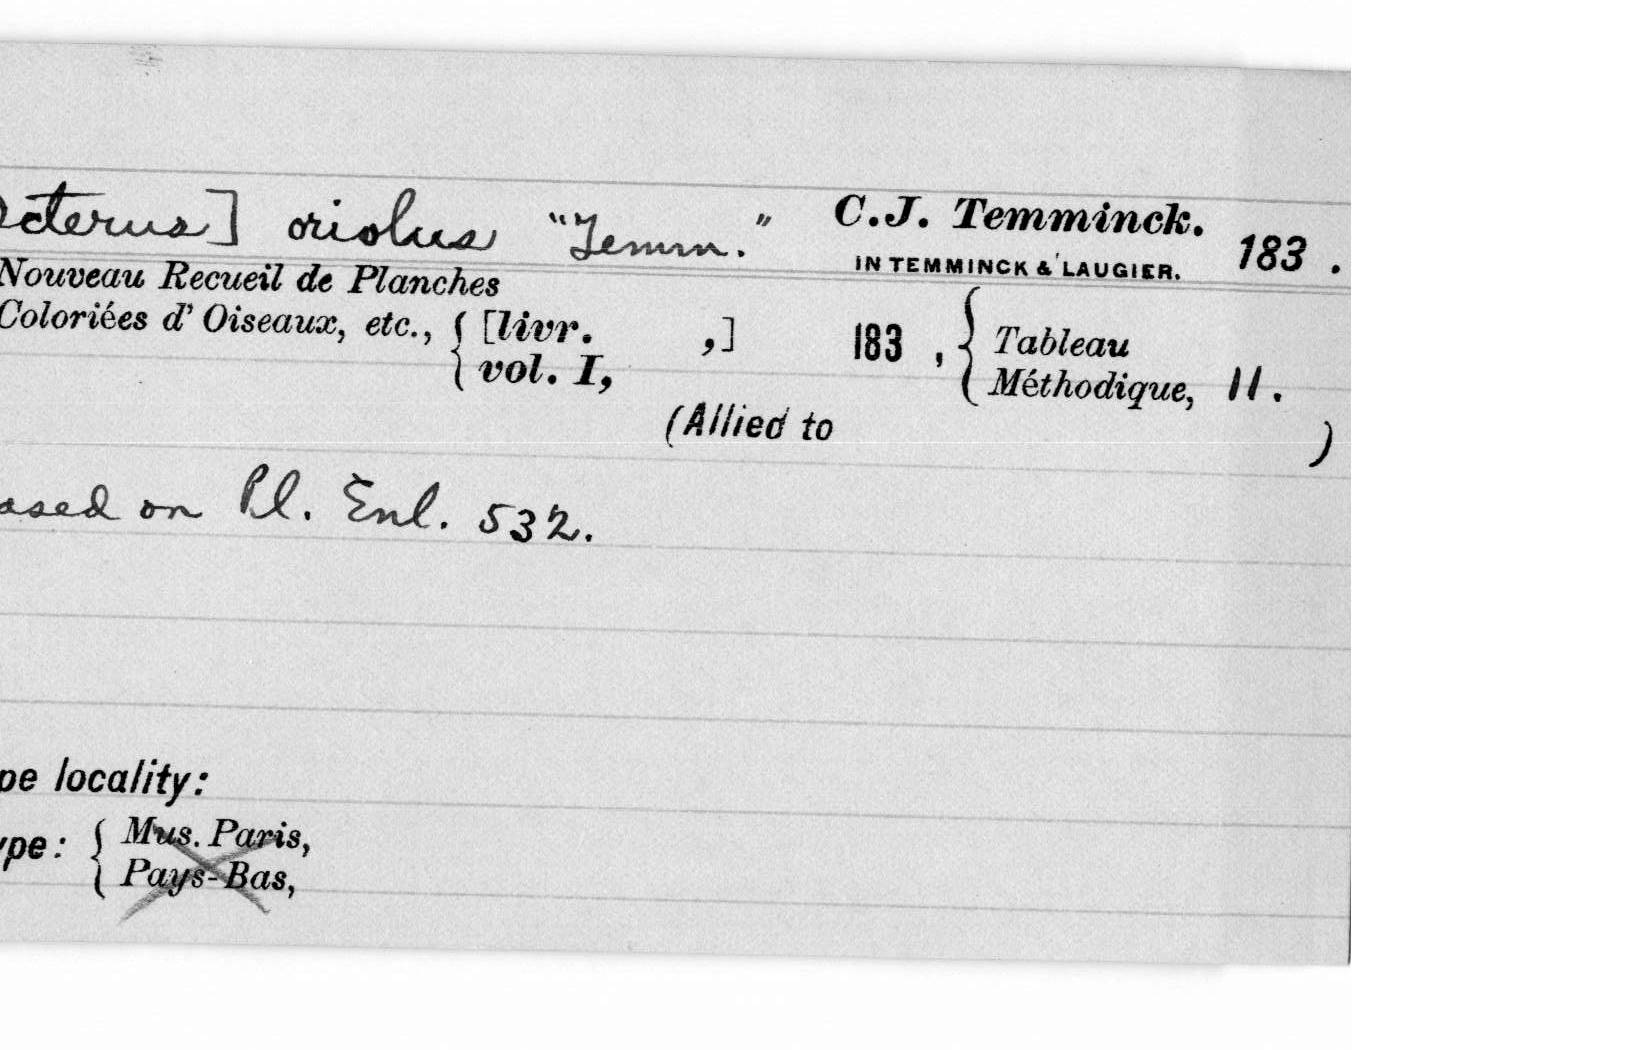 cterus] oriolus "Temm." C.J. Temminck. 183 .
IN TEMMINCK & LAUGIER.
Nouveau Recueil de Planches
Coloriées d' Oiseaux, etc., { [livr. ,] 183 , { Tableau
vol. I, Méthodique, 11.
(Allied to )
ased on Pl. Enl. 532.
pe locality:
ype: { Mus. Paris,
Pays-Bas,